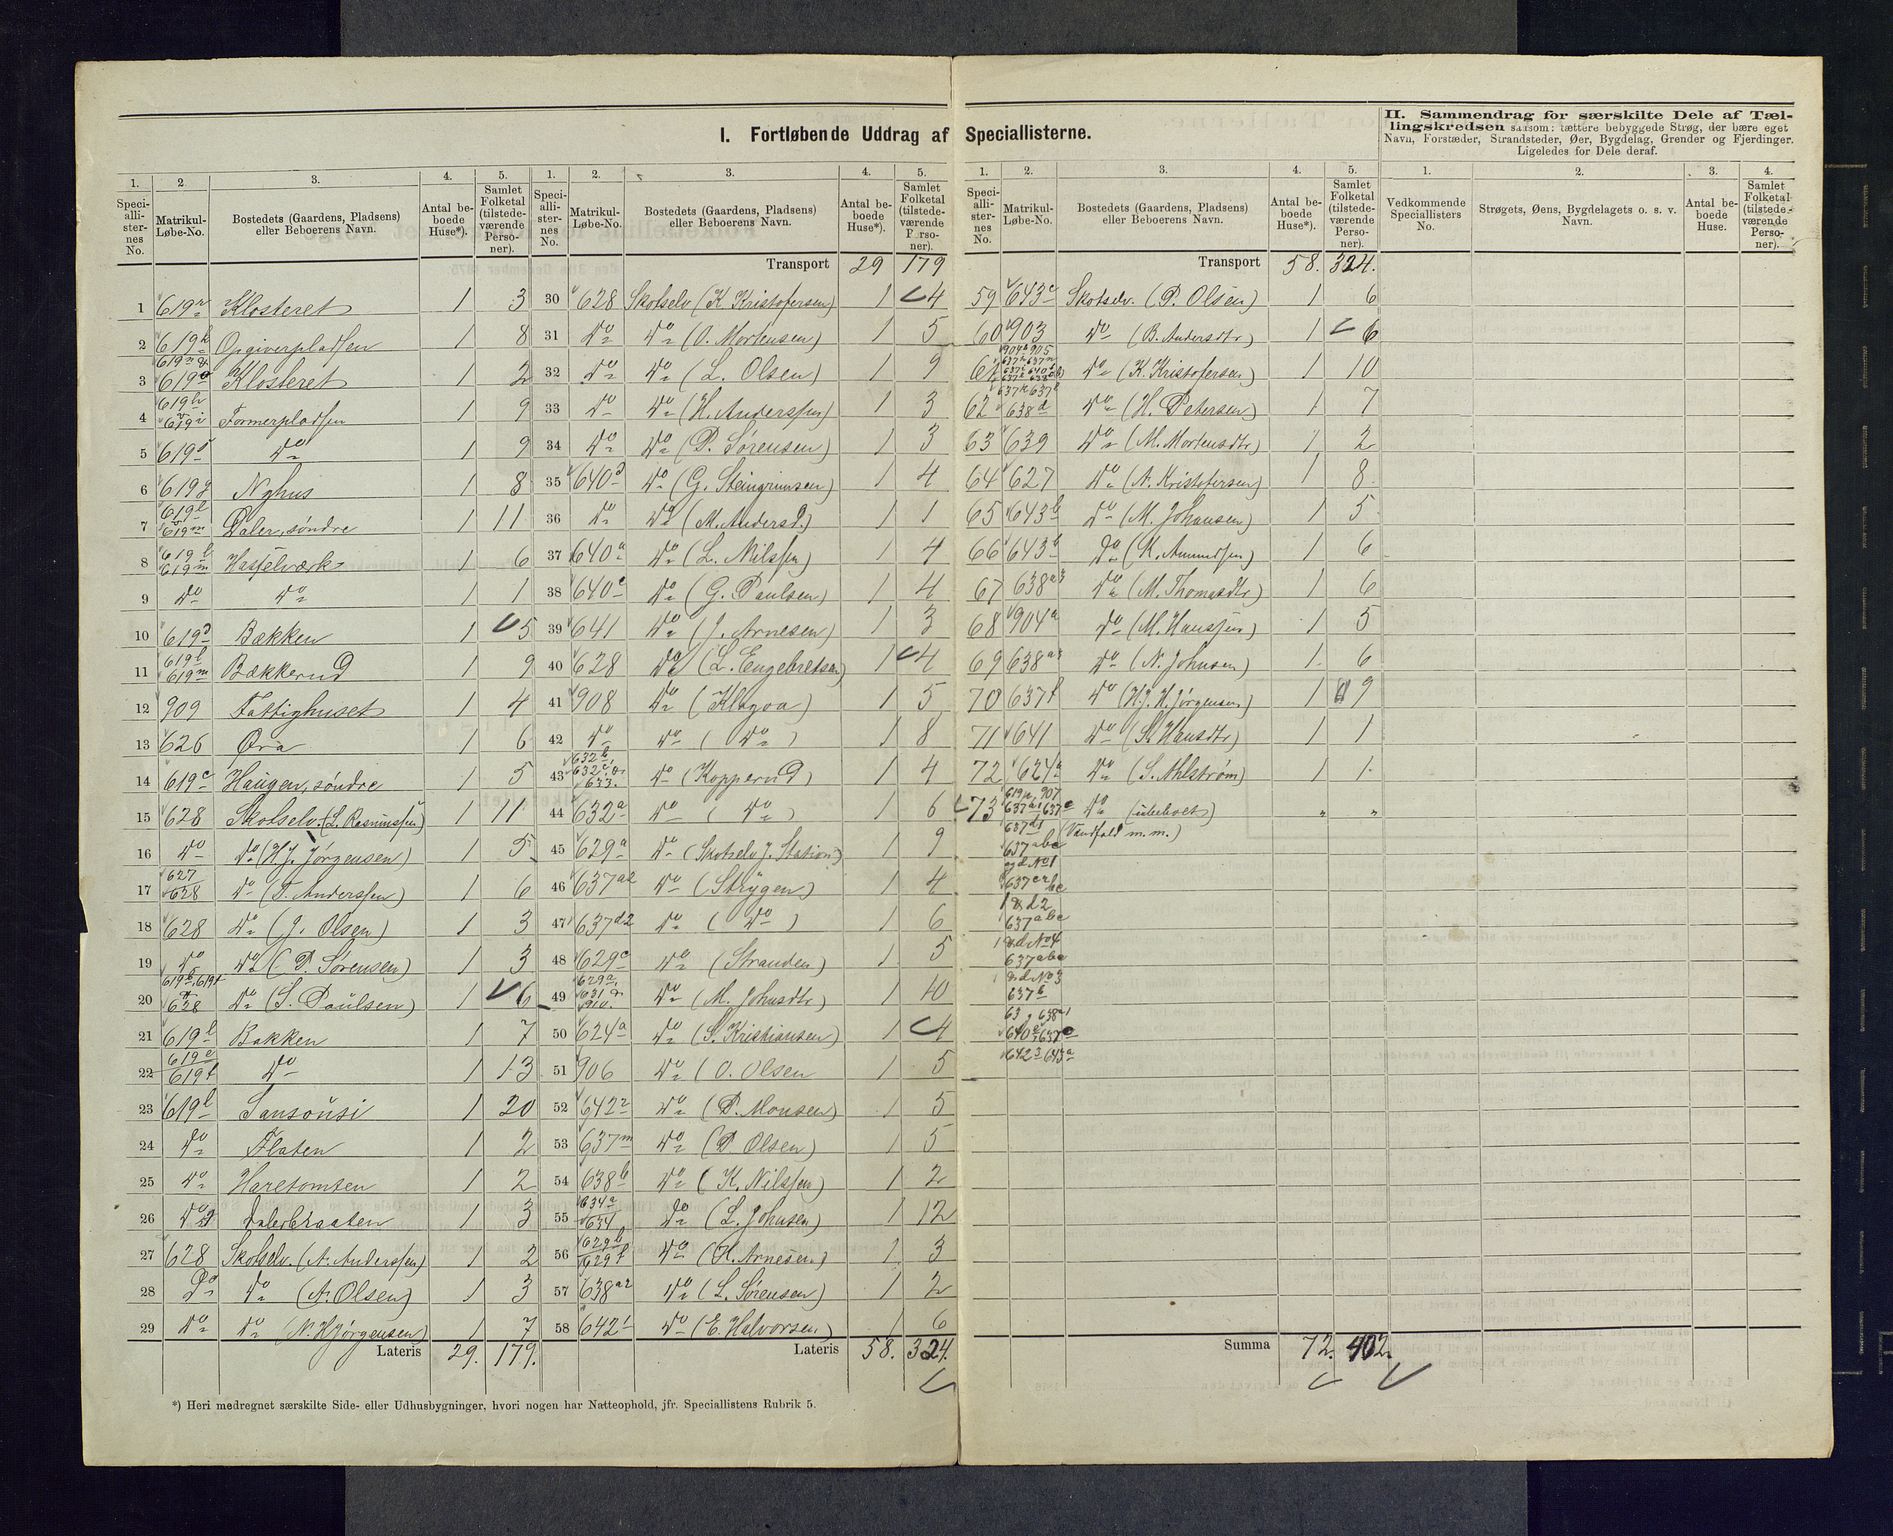 I. Fortløbende Uddrag af Speciallisterne.
II. Sammendrag for særskilte Dele af Tællingskredsen saasom: tættere bebyggede Strøg, der bære eget
Navn, Forstæder, Strandsteder, Øer, Bygdelag, Grender og Fjerdinger.
Ligeledes for Dele deraf.
1. 2. 3. 4. 5. 1. 2. 3. 4. 5. 1. 2. 3. 4. 5. 1. 2. 3. 4.
Speciallisternes No. Matrikul-Løbe-No. Bostedets (Gaardens, Pladsens) eller Beboerens Navn. Antal beboede Huse*). Samlet Folketal (tilstedeværende Personer).
Vedkommende Speciallisters No. Strøgets, Øens, Bygdelagets o. s. v. Navn. Antal beboede Huse. Samlet Folketal (tilstedeværende Personer).
1 619n Klosteret 1 3
2 619k Opgiverpladsen 1 8
3 619o Klosteret 1 2
4 619h 619i Formerpladsen 1 9
5 619 Do 1 9
6 619g Nyhus 1 8
7 619l 619m Daler, søndre 1 11
8 619l 619m Hasselværk 1 6
9 Do Do 1 1
10 619d Bækken 1 5
11 619l 619m Bækkerud 1 9
12 909 Fattighuset 1 4
13 626 Øra 1 6
14 619c Haugen, søndre 1 5
15 628 Skotselv (L. Rasmussen) 1 11
16 Do Do (H. J. Jørgensen) 1 5
17 627 628 Do (T. Anderssen) 1 6
18 628 Do (J. Olsen) 1 3
19 Do Do (P. Sørensen) 1 3
20 638 Do (S. Paulsen) 1 6
21 619b Bakken 1 7
22 619e 619f Do 1 13
23 619l Sansousi 1 20
24 Do Flaten 1 2
25 Do Haretomten 1 2
26 Do Dalerbraaten 1 3
27 628 Skotselv. (A. Anderssen) 1 2
28 Do Do (A. Olsen) 1 3
29 Do Do (N. H. Jørgensen) 1 7
Lateris 29. 179.
Transport 29 179
30 628 Skotselv (K. Kristofersen) 1 4
31 Do Do (O. Mortensen) 1 5
32 Do Do (L. Olsen) 1 9
33 Do Do (H. Anderssen) 1 3
34 Do Do (P. Sørensen) 1 3
35 640d Do (G. Steingrimsen) 1 4
36 Do Do (M. Andersd.) 1 1
37 640a Do (L. Nilssen) 1 4
38 640c Do (G. Paulsen) 1 4
39 641 Do (J. Arnesen) 1 3
40 628 Do (L. Engebretsen) 1 4
41 908 Do (Klopva) 1 5
42 Do Do (Do) 1 8
43 632b 632c 633. Do (Kopperud) 1 4
44 632a Do (Do) 1 6
45 629a Do (Skotselv J. Station) 1 9
46 637a2 Do (Strygen) 1 4
47 637d2 Do (Do) 1 6
48 629c Do (Stranden) 1 5
49 629a, 631 910. Do (M. Johnsdtr) 1 10
50 624a Do (S. Kristiansen) 1 4
51 906 Do (O. Olsen 1 5
52 642 Do (P. Monsen) 1 5
53 637m Do (P. Olsen) 1 5
54 638b Do (K. Nilssen) 1 2
55 634a 634 Do (L. Johnsen) 1 12
56 629b 629f Do (H. Arnesen) 1 3
57 638a2 Do (L. Sørensen) 1 2
58 642 Do (E. Halvorsen) 1 6
Lateris 58. 324.
Transport 58. 324.
59 643c Skotselv. (P. Olsen) 1 6
60 903 Do (B. Andersdtr) 1 6
61 Do (K. Kristofersen) 1 10
62 638d Do (H. Petersen) 1 7
63 639 Do (M. Mortensdtr) 1 2
64 627 Do (N. Kristofersen) 1 8
65 643b Do (M. Johansen) 1 5
66 643b Do (K. Amundsen) 1 6
67 638a3 Do (M. Thomasdtr) 1 6
68 904a Do (M. Hanssen) 1 5
69 638a3 Do (N. Johnsen) 1 6
70 637f Do (H. J. H. Jørgensen) 1 9
71 641 Do (S. Hansdtr) 1 1
72 624a Do (S. Ahlstrøm) 1 1
73 619n, 907 637a1 637c Do (ubeboet) " "
637d1 (Vandfald m.m.)
637abc
637abc
637abc
637b
Summa 72. 402.
*) Heri medregnet særskilte Side- eller Udhusbygninger, hvori nogen har Natteophold, jfr. Speciallistens Rubrik 5.